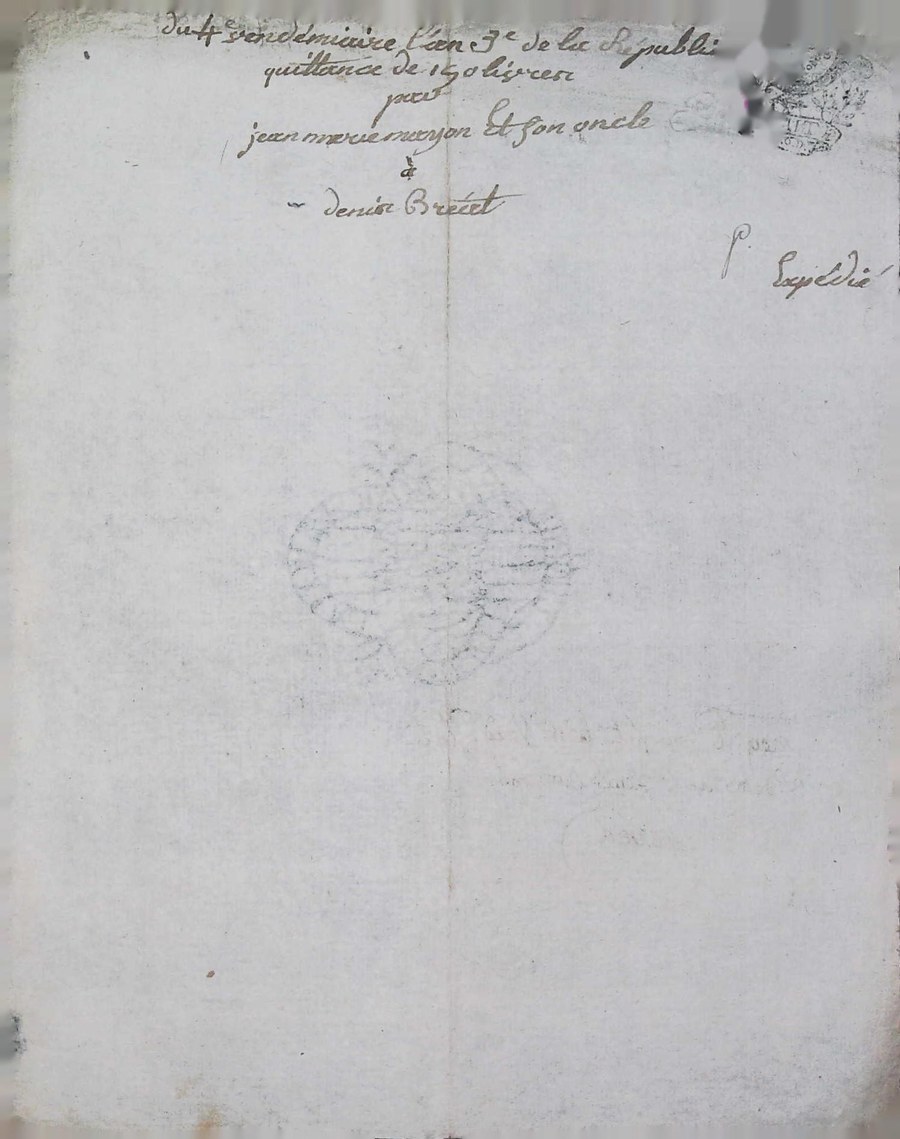 du 4e vendémiaire l'an 3e de la Républi
quittance de 150 livres
par
jean marie mayon Et son oncle
à
denis Bréét
P.
Expédié